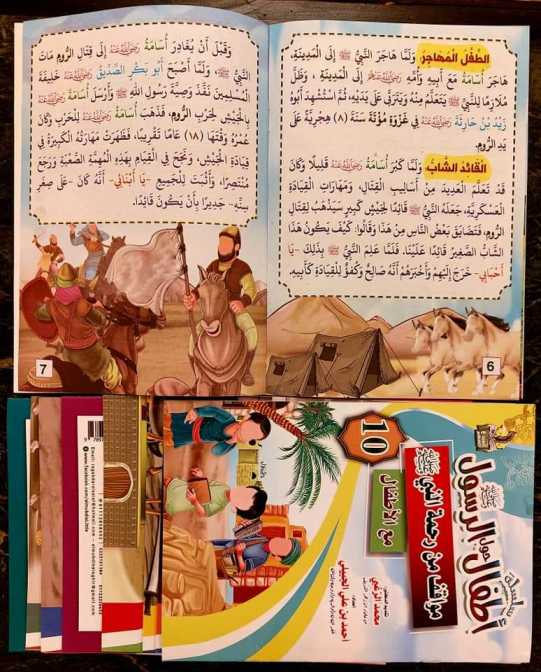 الطِّفْلُ الْمُهَاجِرُ وَلَمَّا هَاجَرَ النَّبِيُّ ﷺ إِلَى الْمَدِينَةِ،
هَاجَرَ أُسَامَةُ مَعَ أَبِيهِ وَأُمِّهِ رَضِيَ اللَّهُ عَنْهُمْ إِلَى الْمَدِينَةِ، وَظَلَّ
مُلَازِمًا لِلنَّبِيِّ ﷺ يَتَعَلَّمُ مِنْهُ وَيَتَرَبَّى عَلَى يَدَيْهِ، ثُمَّ اسْتُشْهِدَ أَبُوهُ
زَيْدُ بْنُ حَارِثَةَ رَضِيَ اللَّهُ عَنْهُ فِي غَزْوَةِ مُؤْتَةَ سَنَةَ (٨) هِجْرِيَّةً عَلَى
يَدِ الرُّومِ.
الْقَائِدُ الشَّابُّ: وَلَمَّا كَبُرَ أُسَامَةُ رَضِيَ اللَّهُ عَنْهُ قَلِيلًا وَكَانَ
قَدْ تَعَلَّمَ الْعَدِيدَ مِنْ أَسَالِيبِ الْقِتَالِ، وَمَهَارَاتِ الْقِيَادَةِ
الْعَسْكَرِيَّةِ، جَعَلَهُ النَّبِيُّ ﷺ قَائِدًا لِجَيْشٍ كَبِيرٍ سَيَذْهَبُ لِقِتَالِ
الرُّومِ، فَتَضَايَقَ بَعْضُ النَّاسِ مِنْ هَذَا وَقَالُوا: كَيْفَ يَكُونُ هَذَا
الشَّابُّ الصَّغِيرُ قَائِدًا عَلَيْنَا. فَلَمَّا عَلِمَ النَّبِيُّ ﷺ بِذَلِكَ -يَا
أَحْبَابِي- خَرَجَ إِلَيْهِمْ وَأَخْبَرَهُمْ أَنَّهُ صَالِحٌ وَكُفُؤٌ لِلْقِيَادَةِ كَأَبِيهِ.
6
وَقَبْلَ أَنْ يُغَادِرَ أُسَامَةُ رَضِيَ اللَّهُ عَنْهُ إِلَى قِتَالِ الرُّومِ مَاتَ
النَّبِيُّ ﷺ، وَلَمَّا أَصْبَحَ أَبُو بَكْرٍ الصِّدِّيقُ رَضِيَ اللَّهُ عَنْهُ خَلِيفَةَ
الْمُسْلِمِينَ نَفَّذَ وَصِيَّةَ رَسُولِ اللهِ ﷺ وَأَرْسَلَ أُسَامَةَ رَضِيَ اللَّهُ عَنْهُ
بِالْجَيْشِ لِحَرْبِ الرُّومِ، فَذَهَبَ أُسَامَةُ رَضِيَ اللَّهُ عَنْهُ لِلْحَرْبِ وَكَانَ
عُمْرُهُ وَقْتَهَا (١٨) عَامًا تَقْرِيبًا، فَظَهَرَتْ مَهَارَتُهُ الْكَبِيرَةُ فِي
قِيَادَةِ الْجَيْشِ، وَنَجَحَ فِي الْقِيَامِ بِهَذِهِ الْمُهِمَّةِ الصَّعْبَةِ وَرَجَعَ
مُنْتَصِرًا، وَأَثْبَتَ لِلْجَمِيعِ -يَا أَبْنَائِي- أَنَّهُ كَانَ -عَلَى صِغَرِ
سِنِّهِ- جَدِيرًا بِأَنْ يَكُونَ قَائِدًا.
7
سلسلة
أطفال حول الرسول
ﷺ
مواقف من رحمة النبي ﷺ
مع الأطفال
10
محمد الزغبي
أحمد بن علي الجبيلي